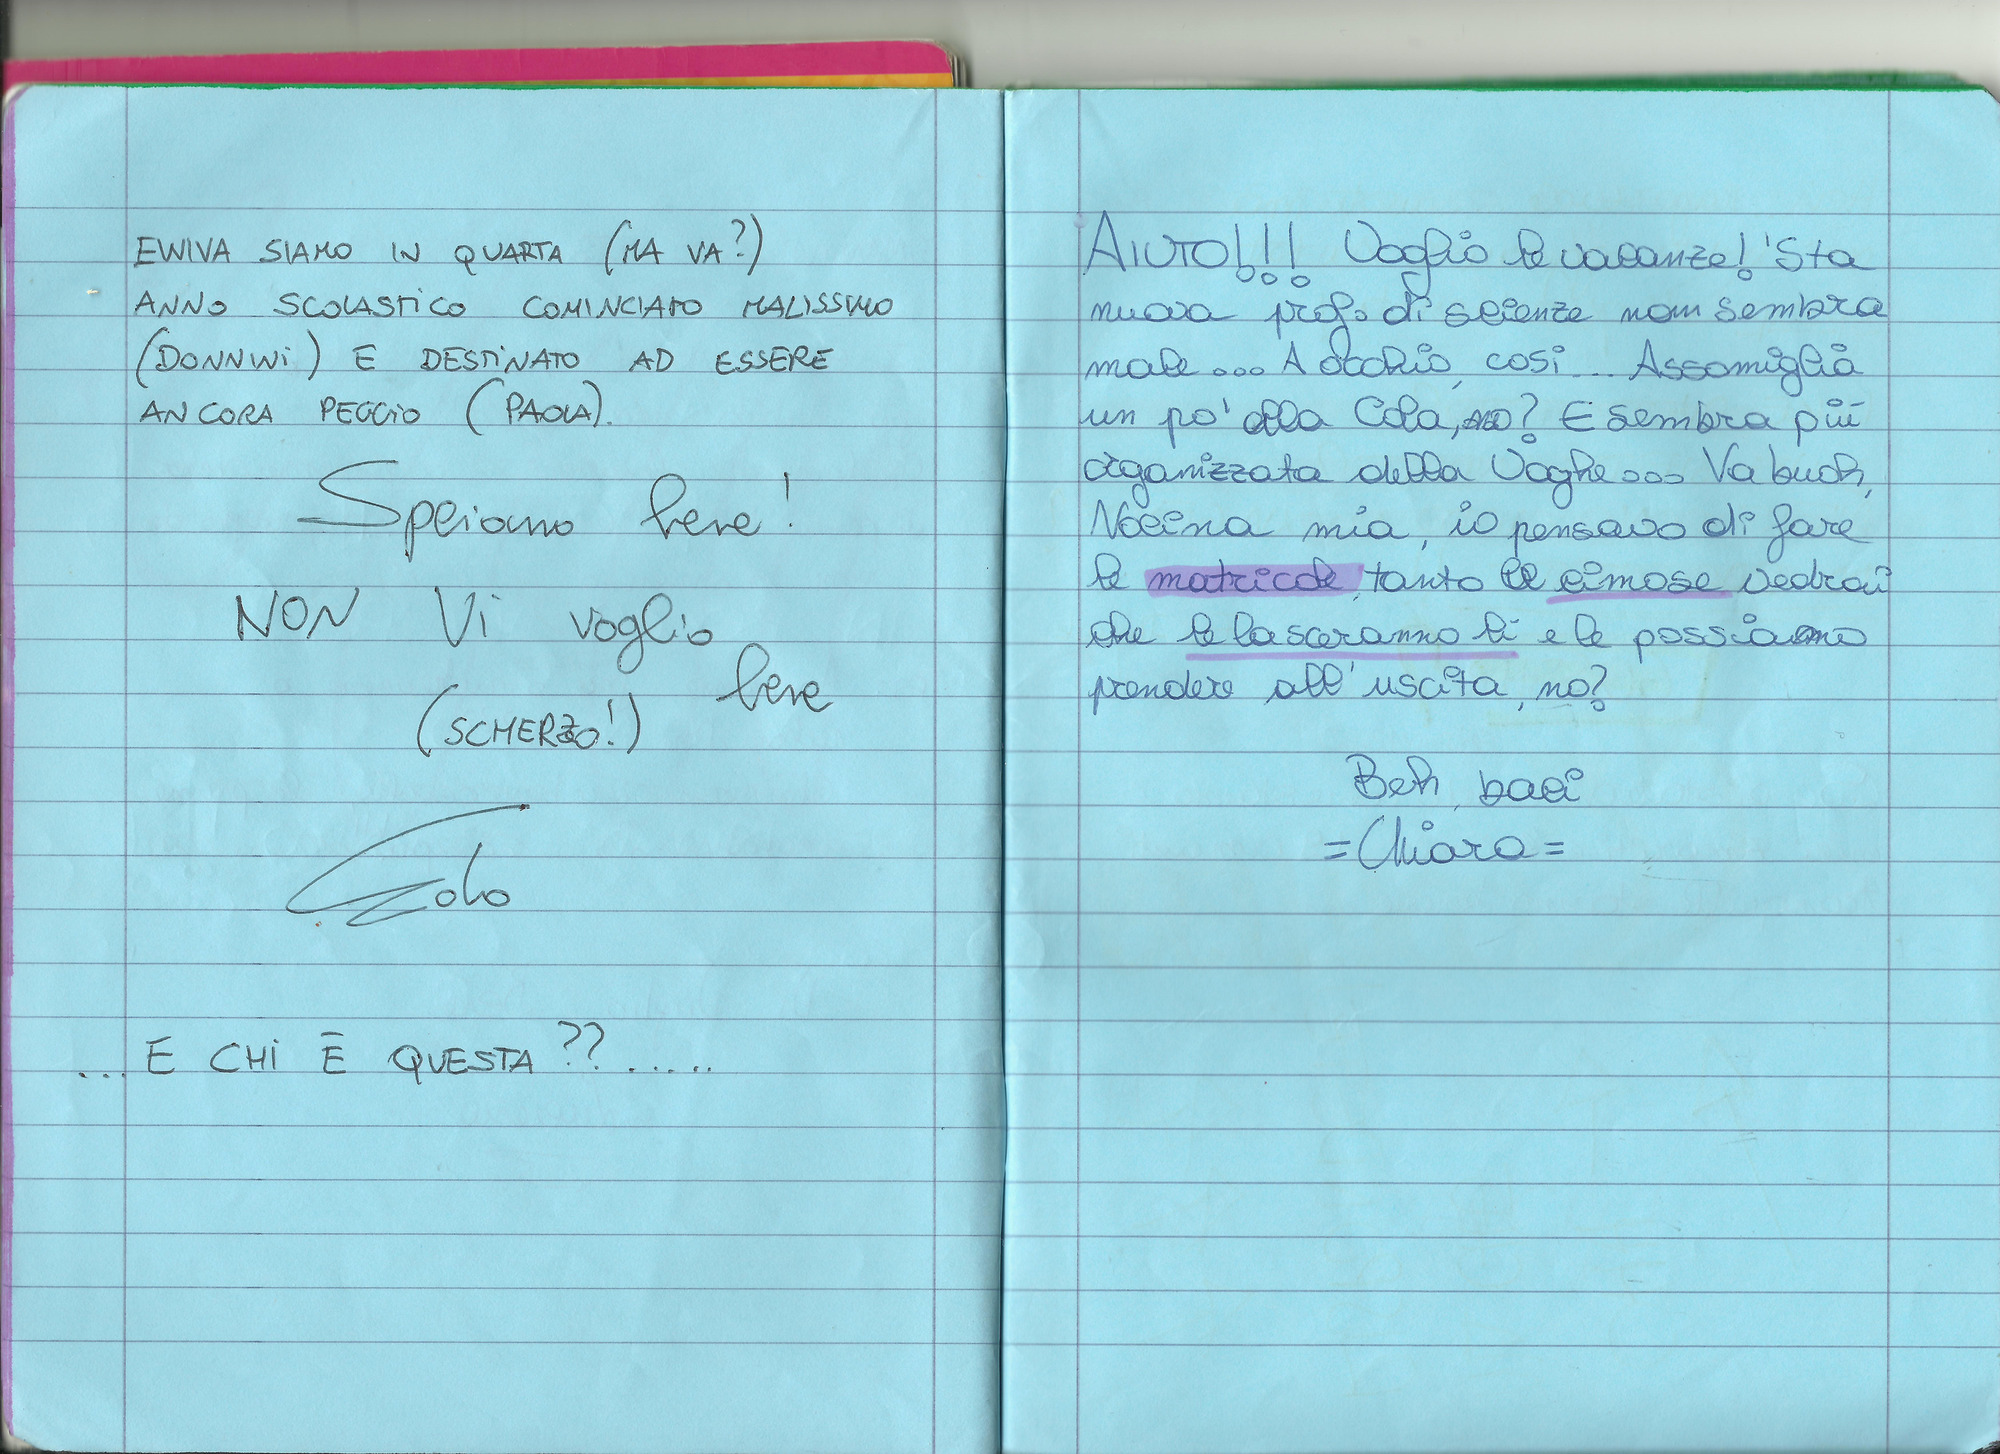 EVVIVA SIAMO IN QUARTA (MA VA?)
ANNO SCOLASTICO COMINCIATO MALISSIMO
(DONNINI) E DESTINATO AD ESSERE
ANCORA PEGGIO (PAOLA).
Speriamo bene!
NON Vi voglio
bene
(SCHERZO!)
... E CHI È QUESTA ??.....
AIUTO!!! Voglio le vacanze! 'Sta
nuova prof. di scienze non sembra
male... A occhio, così... Assomiglia
un po' alla Cola, no? E sembra più
organizzata della Voghe... Va buoh,
Nocina mia, io pensavo di fare
le matricole, tanto le cimose vedrai
che le lasceranno lì e le possiamo
prendere all'uscita, no?
Beh, baci
=Chiara=